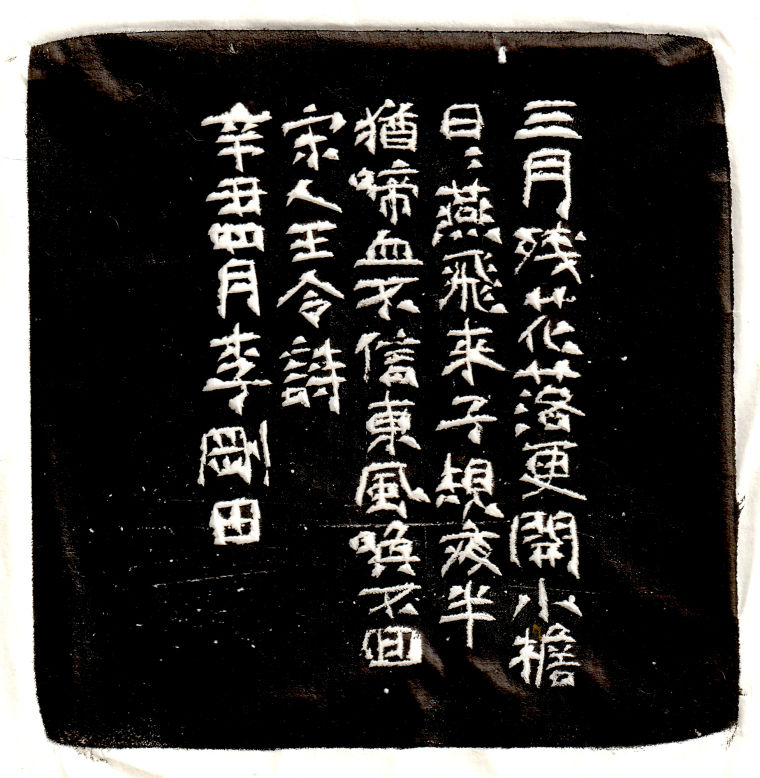 三月残花落更開小檐
日〻燕飛来子規夜半
猶啼血不信東風喚不回
宋人王令詩
辛丑四月李剛田